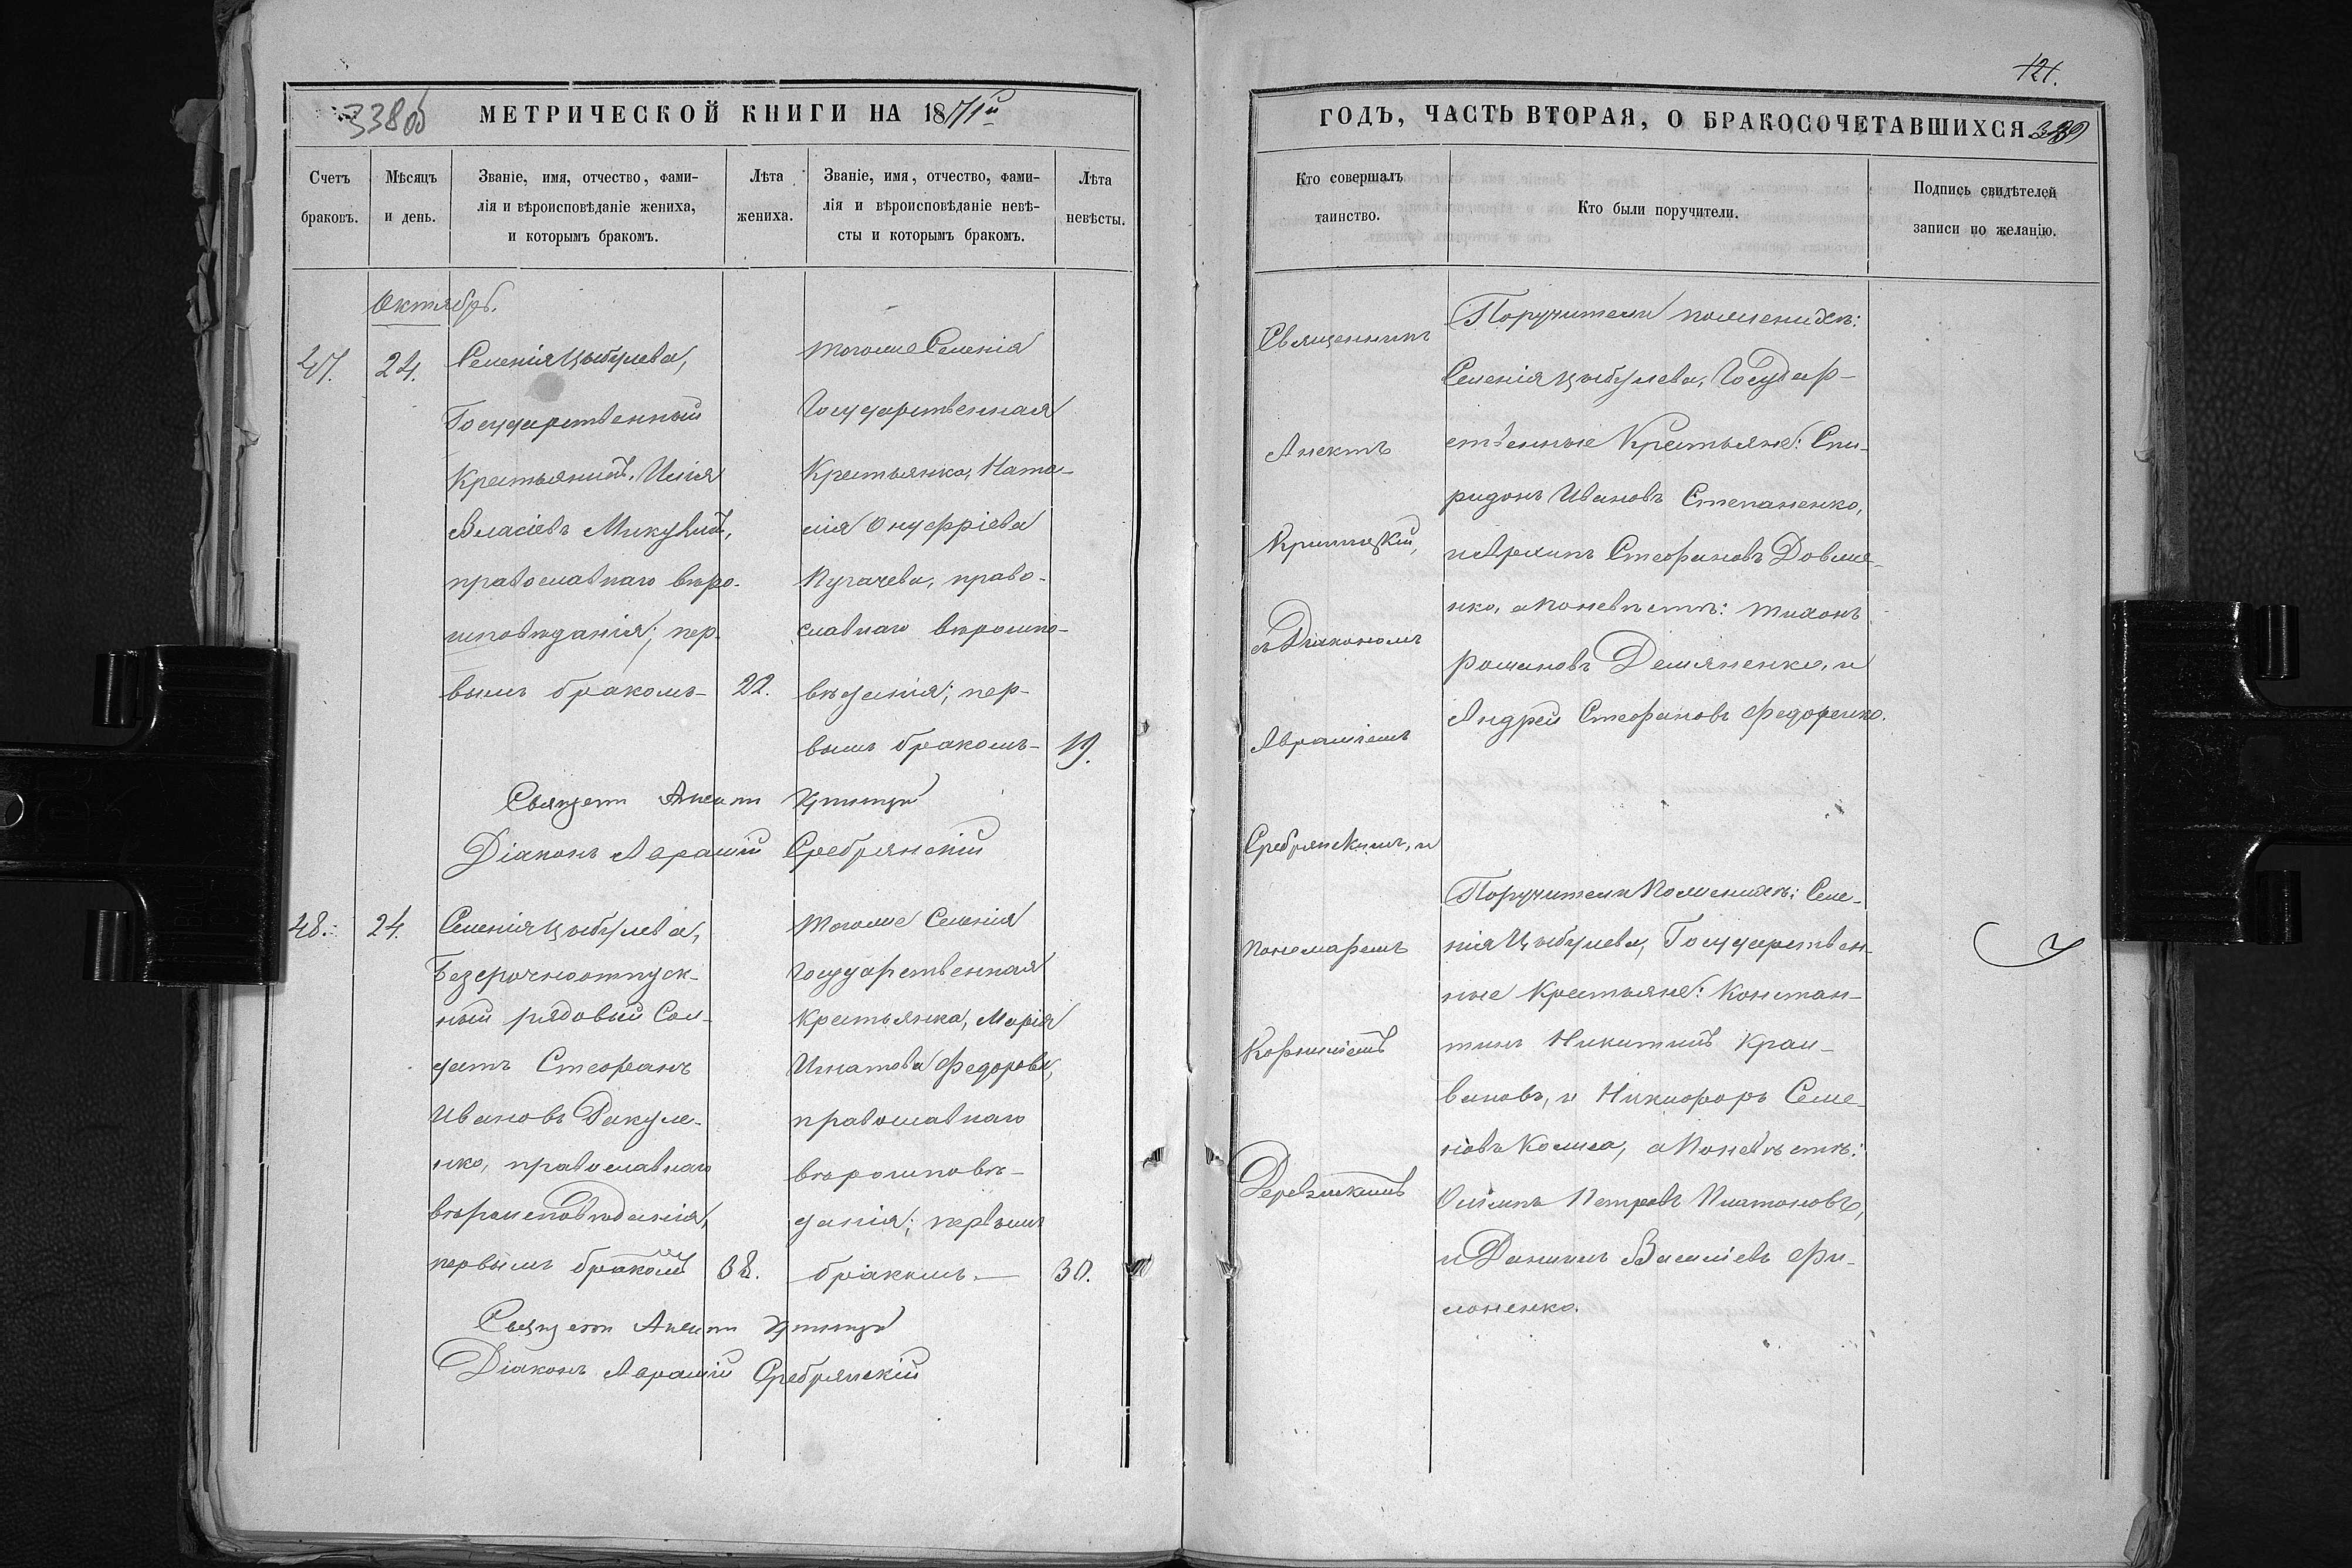 338об
МЕТРИЧЕСКОЙ КНИГИ НА 1871й
Счетъ
браковъ.
Мѣсяцъ
и день.
Званіе, имя, отчество, фами-
лія и вѣроисповѣданіе жениха,
и которымъ бракомъ.
Лѣта
жениха.
Званіе, имя, отчество, фами-
лія и вѣроисповѣданіе невѣ-
сты и которымъ бракомъ.
Лѣта
невѣсты.
Октябрь.
47.
24.
Селенія Цыбулева,
Государственный
Крестьянинъ, Илія
Власіевъ Микулинъ,
православнаго вѣро-
исповѣданія; пер-
вымъ бракомъ-
22.
тогоже Селенія
Государственная
Крестьянка, Ната-
лія Онуфріева
Пугачева, право-
славнаго вѣроиспо-
вѣданія; пер-
вымъ бракомъ-
19.
Священ Анектъ
Діаконъ Аврамій Сребрянскій
48.
24.
Селенія Цыбулева,
Безсрочноотпуск-
ный рядовый Сол-
датъ Стефанъ
Ивановъ Дакуле-
нко, православнаго
вѣроисповѣданія,
первымъ бракомъ
38.
тогоже Селенія
Государственная
Крестьянка, Марія
Игнатова Федорова,
православнаго
вѣроисповѣ-
данія; первымъ
бракомъ.—
30.
Священ Анектъ
Діаконъ Аврамій Сребрянскій
121.
ГОДЪ, ЧАСТЬ ВТОРАЯ, О БРАКОСОЧЕТАВШИХСЯ 339
Кто совершалъ
таинство.
Кто были поручители.
Подпись свидѣтелей
записи по желанію.
Священникъ
Анектъ
Криницкій,
съ Діакономъ
Авраміемъ
Сребрянскимъ, и
пономаремъ
Корниліемъ
Поручители по женихѣ:
Селенія Цыбулева, Государ-
ственные Крестьяне: Спи-
ридонъ Ивановъ Степаненко,
и Архипъ Стефановъ Довже-
нко, а по невѣстѣ: Тихонъ
Романовъ Демяненко, и
Андрей Стефановъ Федоренко.
Поручители по женихѣ: Селе-
нія Цыбулева, Государствен-
ные Крестьяне: Констан-
тинъ Никитинъ Край-
вановъ, и Никифоръ Семе-
новъ Кошка, а по невѣстѣ:
Осипъ Петровъ Платоновъ,
и Даніилъ Василіевъ Фи-
лоненко.